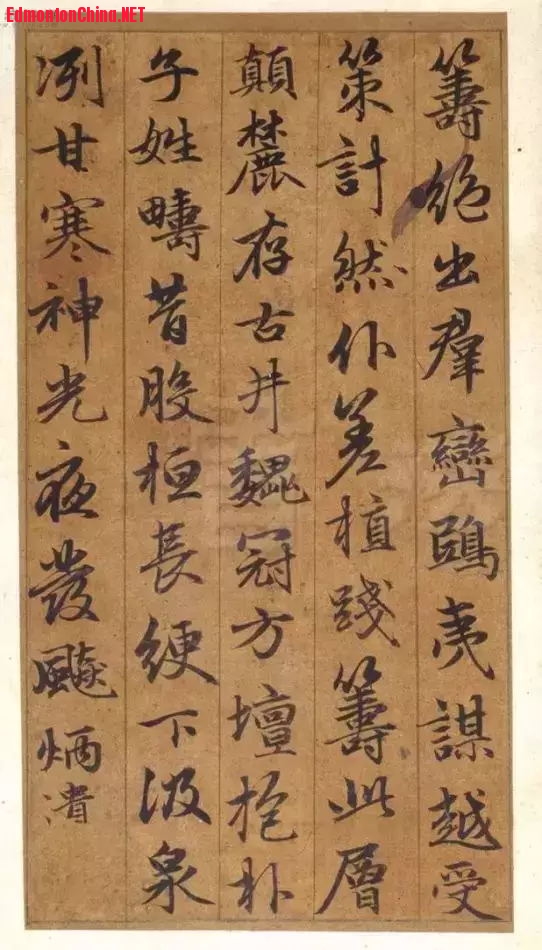 EdmontonChina.NET
籌絕出羣巒鴟夷謀越受
策計然仆差植踐籌此層
顛麓存古井魏冠方壇抱朴
子姓疇昔股桓長綆下汲泉
冽甘寒神光夜發飈炳漬